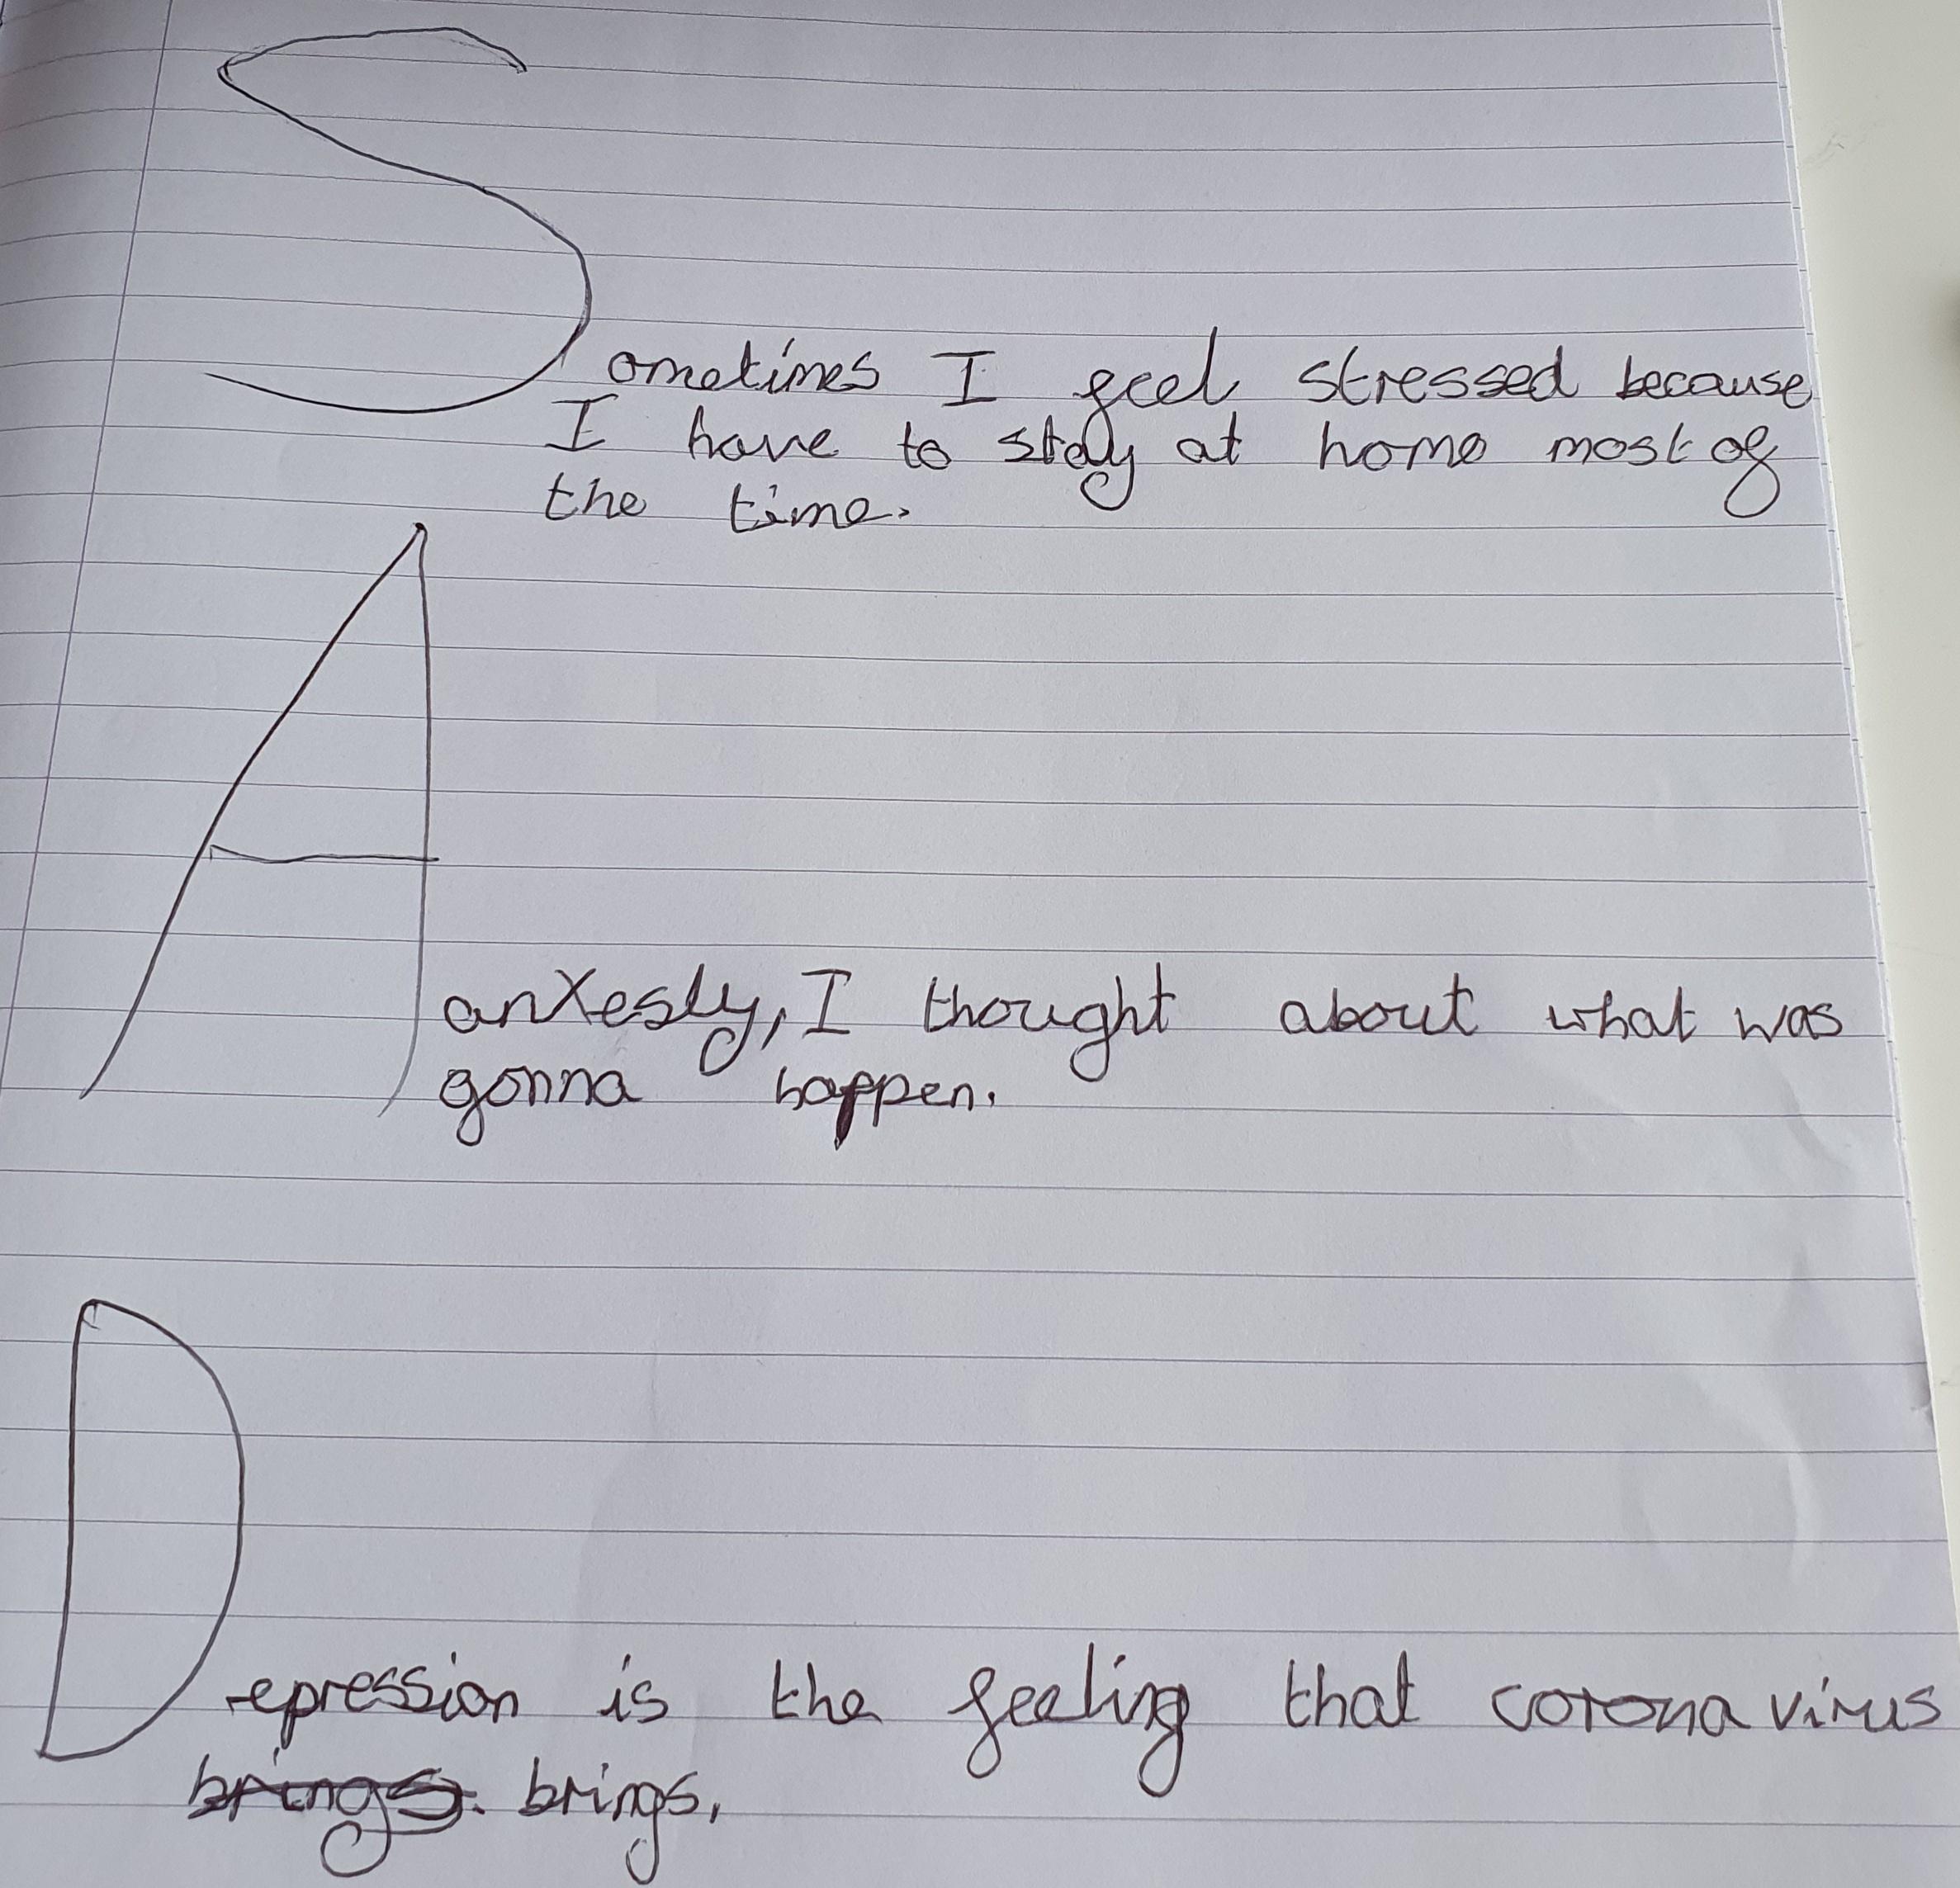 Sometimes I feel stressed because
I have to stay at home most of
the time.
A anxesly, I thought about what was
gonna happen.
Depression is the feeling that corona virus
brings. brings.